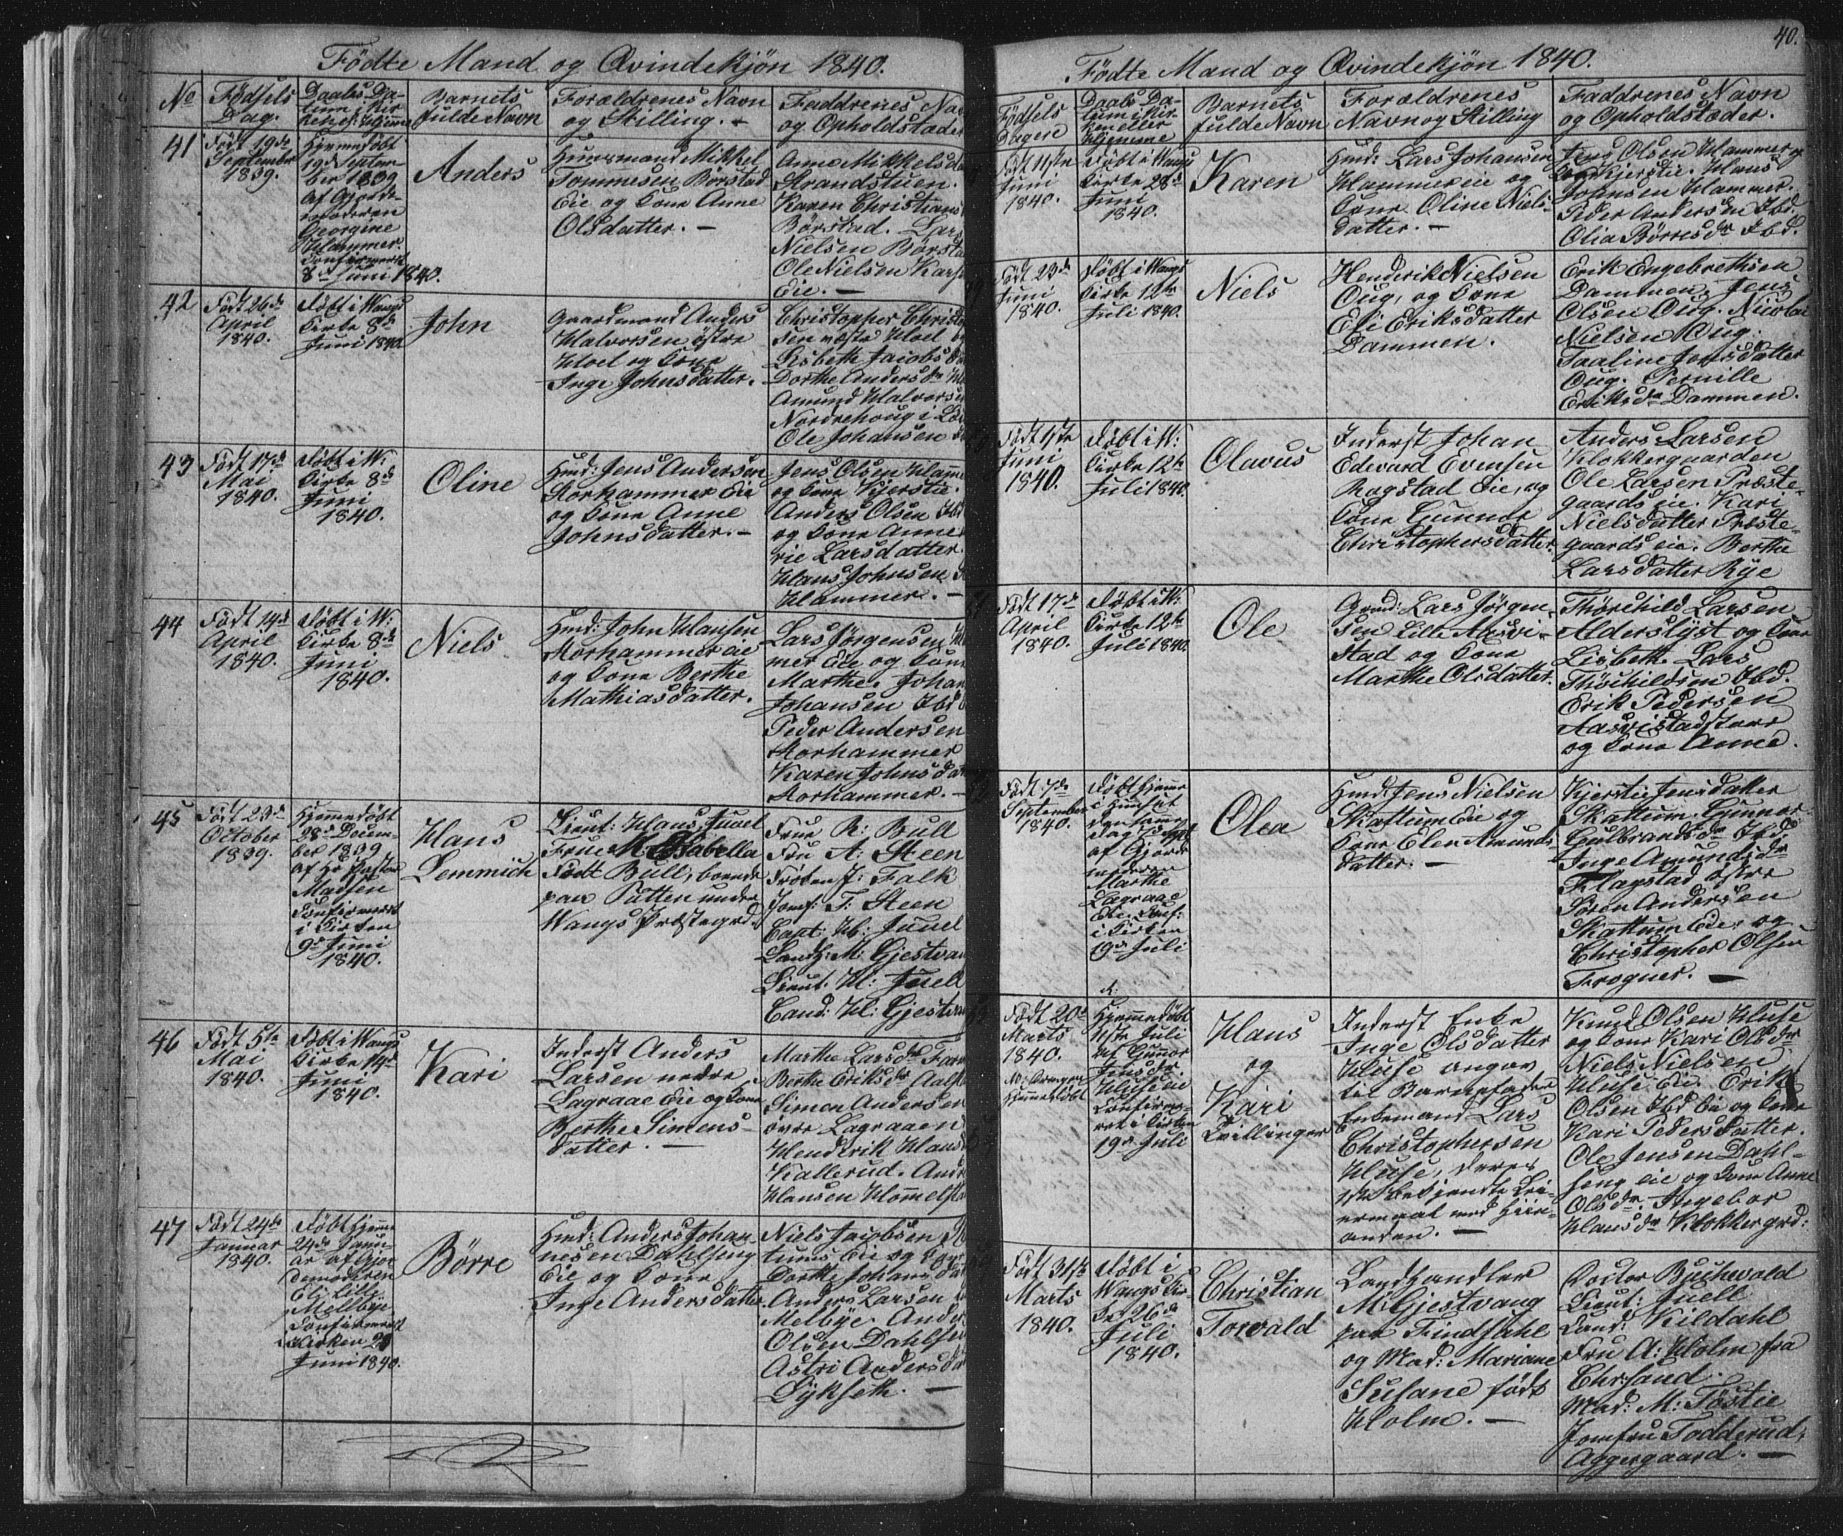 40.
Födte Mand og Qvindekjön 1840.
No
Födsels
Dag.
Daabs Da-
tum i Kir-
ken el: hjemme
Barnets
fulde Navn
Forældrenes Navn
og Stilling. —
Faddrenes Nav
og Opholdstæder
41
Födt 19de
September
1839.
Hjemmedöbt
19de Septem-
ber 1839
af Gjorde-
moderen
Georgine
Hammer.
Confirmeret
8de Juni 1840.
Anders
Huusmand Mikkel
Tommesen Börstad
Eie og Kone Anne
Olsdatter. —
Anne Mikkelsda
Strandstuen.
Karen Christians
Börstad. Lars
Nielsen Börsta
Ole Nielsen
Eie. —
42
Födt 26de
April
1840.
Döbt i Vangs
Kirke 8de
Juni 1840.
John
Gaardmand Anders
Halvorsen östre
Hoel og Kone
Inge Johnsdatter.
Christopher Christo
sen væstre Hoel og
Lisbeth Jacobsd
Dorthe Andersdr
Amund Halvorsen
Nordrehoug i
Ole Johansen
43
Födt 17de
Mai
1840.
Döbt i V:
Kirke 8de
Juni
1840.
Oline
Hmd: Jens Andersen
Storhammer Eie
og Kone Anne
Johnsdatter. —
Jens Olsen Hamme
og Kone Kjerstie.
Anders Olsen Ibd
og Kone Anne
rie Larsdatter.
Hans Johnsen
Hammer. —
44
Födt 14de
April
1840.
Döbt i V:
Kirke 8de
Juni
1840.
Niels
Hmd: John Hansen
Storhammer eie
og Kone Berthe
Mathiasdatter.
Lars Jörgensen
mer Eie og Kone
Marthe. Johan
Johansen Ibd
Peder Andersen
Storhammer
Karen Johnsdat
Storhammer. —
45
Födt 23de
October
1839.
Hjemmedöbt
28de Decem-
ber 1839
af Hr Pastor
Madsen
Confirmeret
i Kirken
9de Juni
1840.
Hans
Lemmich
Lieut: Hans Juuel
Frue M. Isabella
födt Bull, boende
paa Patten under
Vangs Præstegrd
Frue R: Bull
Fru A: Steen
Fröken J: Falk
Jomf: T. Steen
Capt: H: Juuel
Landh: M: Gjestvan
Lieut. H: Juell
Cand: H: Gjestva
46
Födt 5te
Mai
1840.
Döbt i Vangs
Kirke 14de
Juni
1840.
Kari
Inderst Anders
Larsen nedre
Lagraae Eie og Kone
Berthe Simens-
datter. —
Marthe Larsdr
Berthe Eriksdr
Simon Andersen
övre Lagraaen
Hendrik Hans
Kallerud. And
Hansen Hommelst
47
Födt 24de
Januar
1840.
Döbt hjemme
24de Janu-
ar af Gjor-
demoderen
Eli Lille
Melbye
Confirmeret
i Kirken 21
Juni 1840.
Börre
Hmd: Anders Johan-
nesen Dahlseng
Eie og Kone
Inge Andersdatter.
Niels Jacobsen
tums Eie og
Dorthe Johannesdat
Anders Larsen
Melbye. Ander
Olsen Dahlsen
Astri Andersdat
Dÿkseth. —
Födte Mand og Qvindekjön 1840.
Födsels
Dagen
Daabs Da-
tum i Kir-
ken eller
hjemme
Barnets
fulde Navn
Forældrenes
Navn og Stilling
Faddrenes Navn
og Opholdstæder.
Födt 11te
Juni
1840.
Döbt i Vangs
Kirke 28de
Juni
1840.
Karen
Hmd: Lars Johansen
Hammer eie og
Kone Oline Niels-
datter. —
Jens Olsen Hammer og
Kone Kjerstie. Hans
Johnsen Hammer.
Peder Andersen Ibd.
Olia Börresdr Ibd.
Födt 23de
Juni
1840.
Döbt i Vangs
Kirke 12te
Juli 1840.
Niels
Henderik Nielsen
Oug, og Kone
Eli Eriksdatter
Dammen.
Erik Engebrethsen
Dammen. Jens
Olsen Oug. Nicolai
Nielsen Oug.
Taaline Jonsdatter
Oug. Pernille
Eriksdr Dammen.
Födt 4de
Juni
1840.
Döbt i V:
Kirke 12te
Juli 1840.
Olavus
Inderst Johan
Edvard Evensen
Rogstad Eie, og
Kone Gunnor
Christophersdatter.
Anders Larsen
Klokkergaarden
Ole Larsen Præste-
gaards eie. Kari
Nielsdatter Præste-
gaards eie. Berthe
Larsdatter Rÿe
Födt 17de
April
1840.
Döbt i V:
Kirke 12te
Juli 1840.
Ole
Grmd: Lars Jörgen-
sen Lille Aasvi-
stad og Kone
Marthe Olsdatter.
Thorchild Larsen
Alderslÿst og Kone
Lisbeth. Lars
Thorchildsen Ibd.
Erik Pedersen
Aasvistadstuen
og Kone Anne.
Födt 7de
September
1840.
Döbt hjemme
i Huuset
den samme
Dag
af Gjorde-
moderen
Marthe
Lagraae
Eie. Conf:
i Kirken
19de Juli
Olea
Hmd: Jens Nielsen
Skattum Eie og
Kone Elen Amunds-
datter. —
Kjersti Jensdatter
Skattum. Gunnor
Gulbrandsdr Ibd.
Inge Amundsdr
Flagstad östre
Sören Andersen
Skattum Eie, og
Christopher Olsen
Frogner. —
Födt 20de
Marts
1840.
Hjemmedöbt
Juli
af Gunnor
Jensdr
Huse eie
Confirme-
ret i Kirken
19de Juli
Hans
og
Kari
Tvillinger
Inderst Enke
Inge Olsdatter
Huse angav
til Barnefader
Enkemand Lars
Christophersen
Huse, deres
1ste bekjendte Lei-
ermaal med hver-
anden. —
Knud Olsen Huse
og Kone Kari Olsdr
Niels Nielsen
Huse Eie. Erik
Olsen Ibd Eie og Kone
Kari Pedersdatter.
Ole Jensen Dahl-
seng eie og Kone Anne
Olsdr. Ingebor
Hansdr Klokkergrd:
Födt 31te
Marts
1840.
Döbt i
Vangs Kir-
ke 26de
Juli
1840.
Christian
Torvald
Landhandler
M: Gjestvang
paa Findstahl
og Mad: Mariane
Susane födt
Holm. —
Doctor Buchwald
Lieut: Juell
Land: Kildahl
Fru A: Holm fra
Chrsand.
Mad: M: Töstie
Jomfru Todderud,
Aggersgaard. —